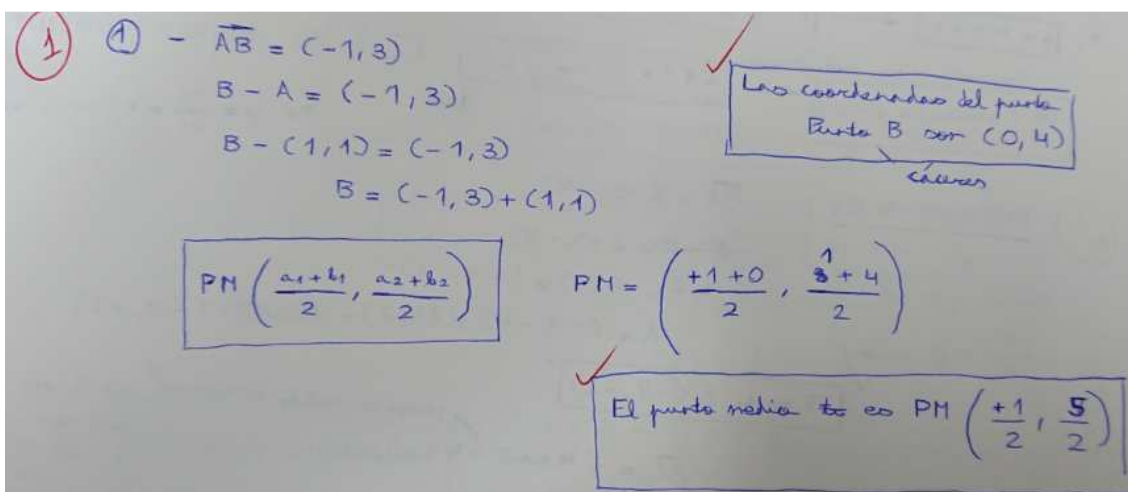 1 ① - AB = (-1, 3)
B - A = (-1, 3)
B - (1, 1) = (-1, 3)
B = (-1, 3) + (1, 1)
Las coordenadas del punto
Punto B son (0, 4)
cáceres
PM ( a1+b1 / 2 , a2+b2 / 2 )
PM = ( +1+0 / 2 , 1+4 / 2 )
El punto medio es PM ( +1 / 2 , 5 / 2 )